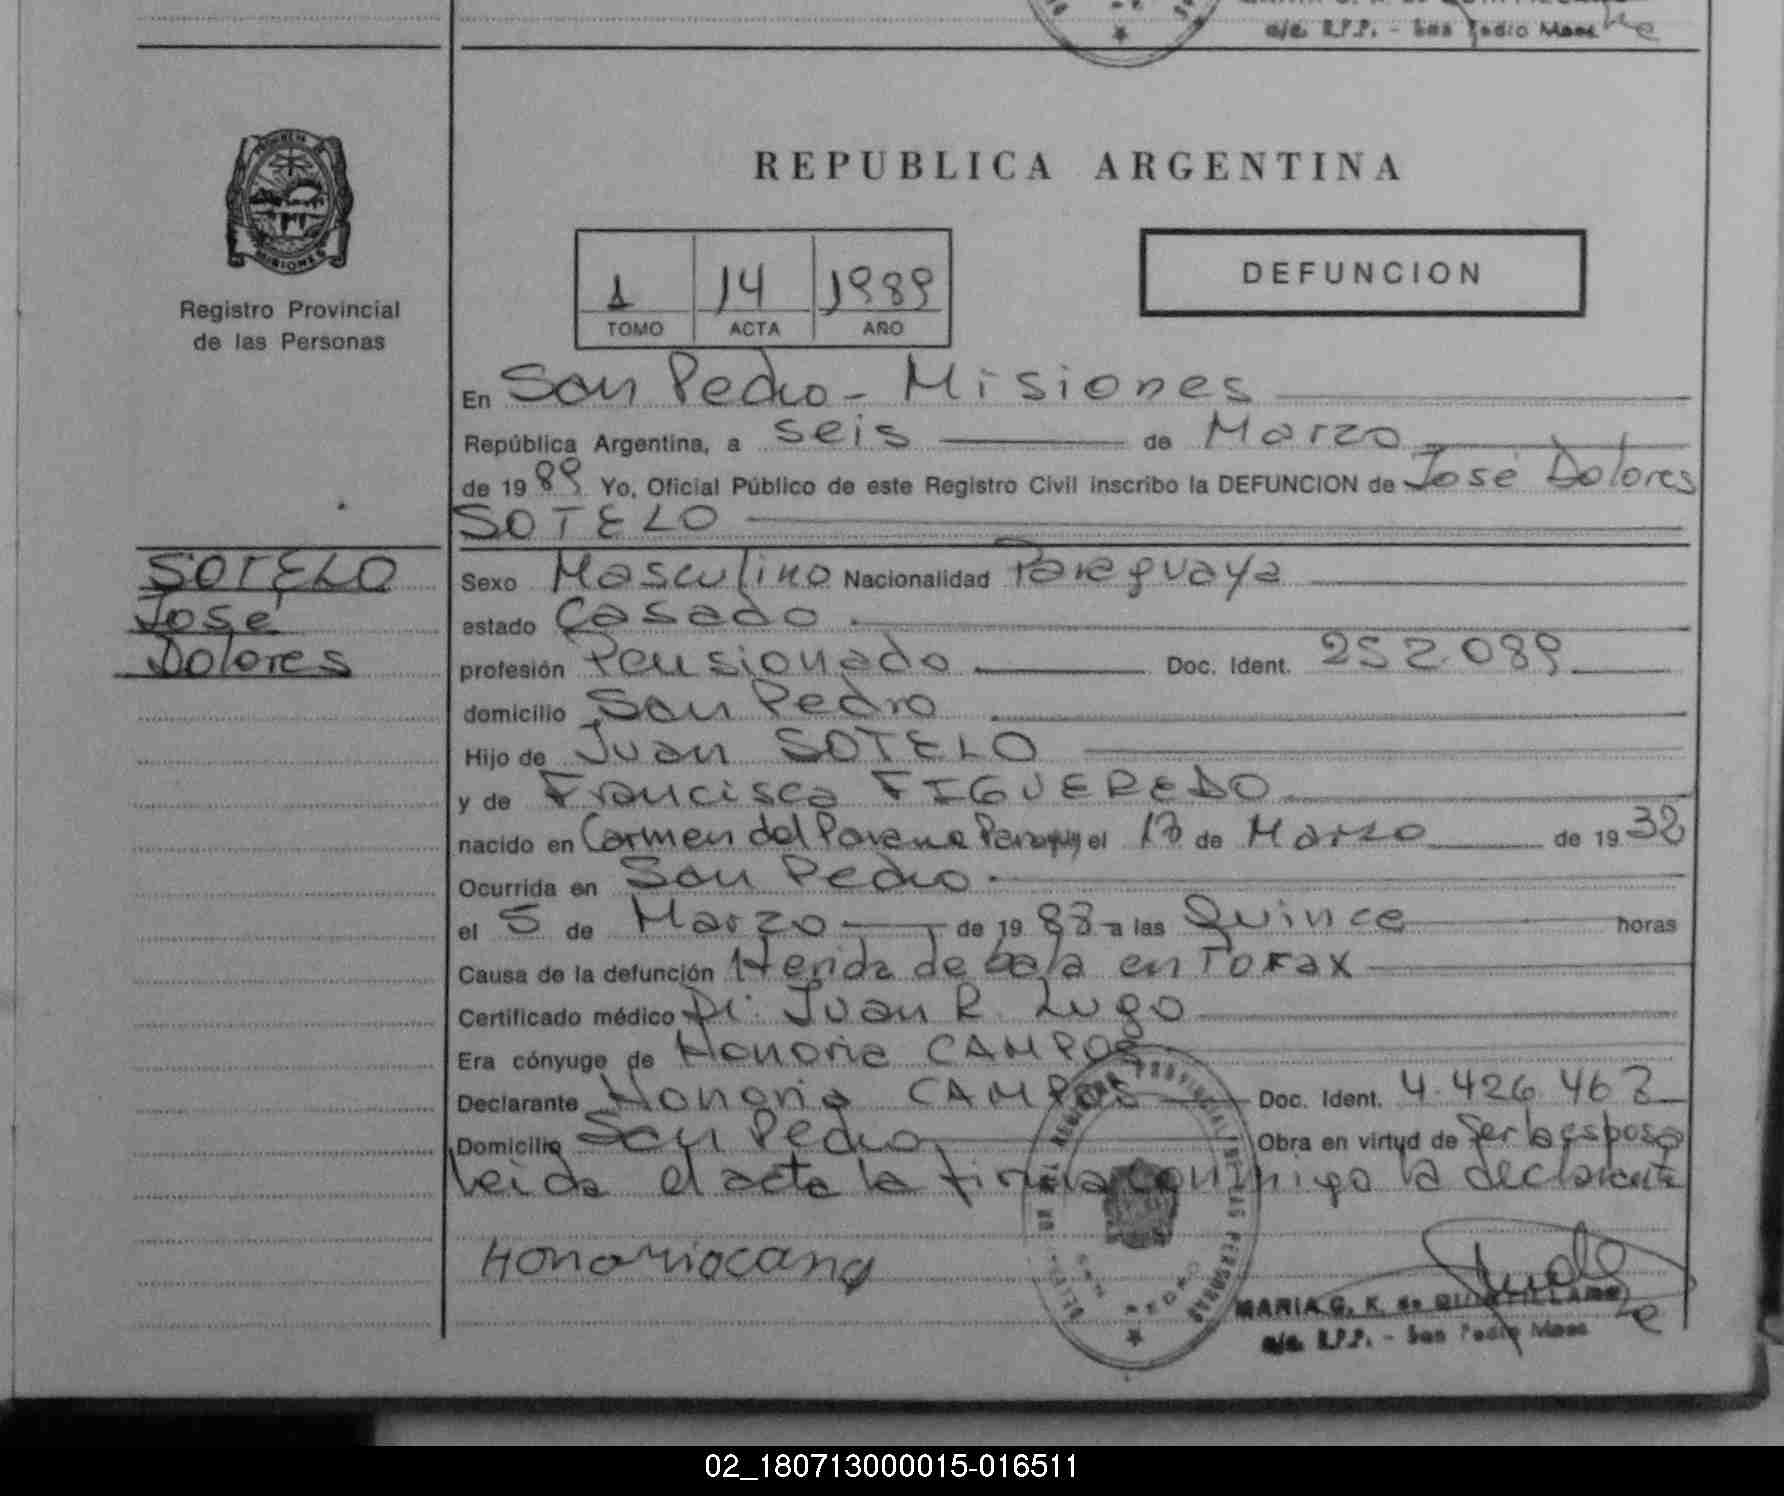 a/c. R.P.P. - San Pedro Mnes
PROVINCIA DE
MISIONES
Registro Provincial
de las Personas
REPUBLICA ARGENTINA
1 14 1989
TOMO ACTA AÑO
DEFUNCION
En San Pedro - Misiones
República Argentina, a seis de Marzo
de 19 89 Yo, Oficial Público de este Registro Civil inscribo la DEFUNCION de José Dolores
SOTELO
SOTELO
José
Dolores
Sexo Masculino Nacionalidad Paraguaya
estado Casado
profesión Pensionado Doc. Ident. 252.089
domicilio San Pedro
Hijo de Juan SOTELO
y de Francisca FIGUEREDO
nacido en Carmen del Parana Paraguay el 13 de Marzo de 19 32
Ocurrida en San Pedro
el 5 de Marzo de 19 89 a las Quince horas
Causa de la defunción Herida de bala en Torax
Certificado médico Dr. Juan R. Lugo
Era cónyuge de Honoria CAMPOS
Declarante Honoria CAMPOS Doc. Ident. 4.426.463
Domicilio San Pedro Obra en virtud de Ser la esposa
Leida el acta la firma conmigo la declarante
REGISTRO PROVINCIAL DE LAS PERSONAS
Honoriacamp
MARIA G. K. de QUINTILLAN
a/c. R.P.P. - San Pedro Mnes
02_180713000015-016511